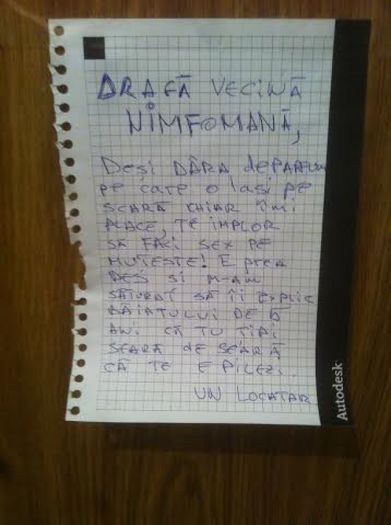 DRAGĂ VECINĂ
NIMFOMANĂ,
DEȘI DÂRA DE PARFUM
PE CARE O LAȘI PE
SCARĂ CHIAR ÎMI
PLACE, TE IMPLOR
SĂ FACI SEX PE
MUTEȘTE! E PREA
DES ȘI M-AM
SĂTURAT SĂ ÎI EXPLIC
BĂIATULUI DE 5
ANI CĂ TU ȚIPI
SEARĂ DE SEARĂ
CĂ TE EPILEZI.
UN LOCATAR
Autodesk